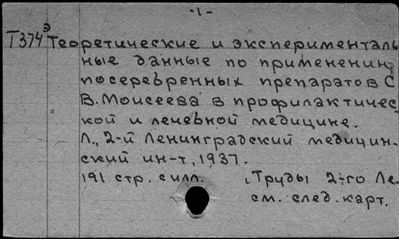 -1-
Э
Т374 Теоретические и эксперименталь
ные данные по применению
посеребренных препаратов С
В. Моисеева в профилактичес
кой и лечебной медицине.
Л., 2-й Ленинградский медицин-
ский ин-т, 1937.
191 стр. с илл. „Труды 2-го Ле
см. след. карт.